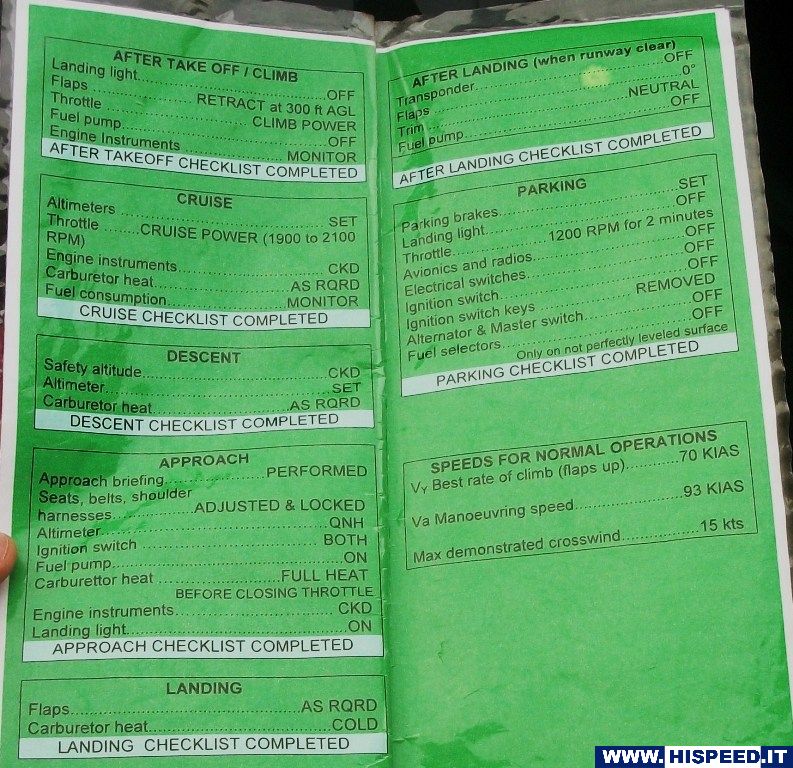 AFTER TAKE OFF / CLIMB
Landing light..........OFF
Flaps..........RETRACT at 300 ft AGL
Throttle..........CLIMB POWER
Fuel pump..........OFF
Engine Instruments..........MONITOR
AFTER TAKEOFF CHECKLIST COMPLETED
CRUISE
Altimeters..........SET
Throttle..........CRUISE POWER (1900 to 2100
RPM)
Engine instruments..........CKD
Carburetor heat..........AS RQRD
Fuel consumption..........MONITOR
CRUISE CHECKLIST COMPLETED
DESCENT
Safety altitude..........CKD
Altimeter..........SET
Carburetor heat..........AS RQRD
DESCENT CHECKLIST COMPLETED
APPROACH
Approach briefing..........PERFORMED
Seats, belts, shoulder
harnesses..........ADJUSTED & LOCKED
Altimeter..........QNH
Ignition switch..........BOTH
Fuel pump..........ON
Carburettor heat..........FULL HEAT
BEFORE CLOSING THROTTLE
Engine instruments..........CKD
Landing light..........ON
APPROACH CHECKLIST COMPLETED
LANDING
Flaps..........AS RQRD
Carburetor heat..........COLD
LANDING CHECKLIST COMPLETED
AFTER LANDING (when runway clear)
Transponder..........OFF
Flaps..........0°
Trim..........NEUTRAL
Fuel pump..........OFF
AFTER LANDING CHECKLIST COMPLETED
PARKING
Parking brakes..........SET
Landing light..........OFF
Throttle..........1200 RPM for 2 minutes
Avionics and radios..........OFF
Electrical switches..........OFF
Ignition switch..........OFF
Ignition switch keys..........REMOVED
Alternator & Master switch..........OFF
Fuel selectors..........OFF
Only on not perfectly leveled surface
PARKING CHECKLIST COMPLETED
SPEEDS FOR NORMAL OPERATIONS
VY Best rate of climb (flaps up)..........70 KIAS
Va Manoeuvring speed..........93 KIAS
Max demonstrated crosswind..........15 kts
WWW.HISPEED.IT